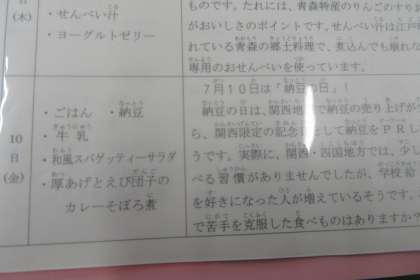 (木)
・せんべい汁
・ヨーグルトゼリー
ものです。たれには、青森特産のりんごのすりお
がおいしさのポイントです。せんべい汁は江戸
れている青森の郷土料理で、煮込んでも崩れな
専用のおせんべいを使っています。
10
日
(金)
・ごはん ・納豆
・牛乳
・和風スパゲッティーサラダ
・厚あげとえび団子の
カレーそぼろ煮
7月10日は「納豆の日」！
納豆の日は、関西地で納豆の売り上げが
ら、関西限定の記念日として納豆をPRし
うです。実際に、関西・四国地方では、少し
べる習慣がありませんでしたが、学校給
を好きになった人が増えているそうです。
で苦手を克服した食べものはありますか